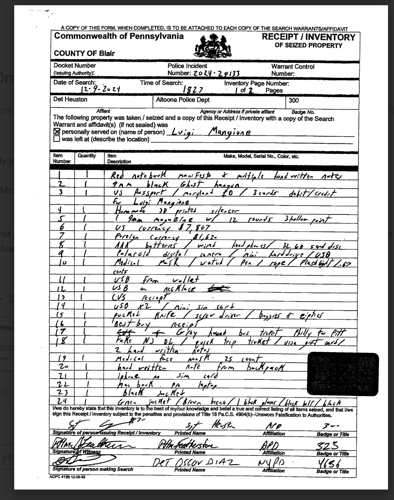 A COPY OF THIS FORM, WHEN COMPLETED, IS TO BE ATTACHED TO EACH COPY OF THE SEARCH WARRANT/AFFIDAVIT
Commonwealth of Pennsylvania
COUNTY OF Blair
RECEIPT / INVENTORY
OF SEIZED PROPERTY
Docket Number
(Issuing Authority):
Police Incident
Number: 2024-29133
Warrant Control
Number:
Date of Search:
12-9-2024
Time of Search:
1827
Inventory Page Number:
1 of 2 Pages
Det Heuston
Altoona Police Dept
300
Affiant
Agency or Address if private affiant
Badge No.
The following property was taken / seized and a copy of this Receipt / Inventory with a copy of the Search
Warrant and affidavit(s) (if not sealed) was
personally served on (name of person) Luigi Mangione
was left at (describe the location)
Item Number
Quantity
Item Description
Make, Model, Serial No., Color, etc.
1 Red notebook & multiple hand written notes
2 9mm black Ghost
3 US Passport / maryland / 3 cards debit/credit
for Luigi Mangione
4 3D printed silencer
5 1 9mm magazine w/ 12 rounds 3 hollow point
6 US currency $7,867
7 Foreign currency
8 batteries / / 32 GB sand disc
9 Polaroid digital camera / mini harddrive / USB
10 Medical mask / watch / pen / rope /
11 USB from wallet
12 USB on necklace
13 CVS receipt
14 USB x2 / mini sim card
15 pocket knife / screw driver /
16 Best buy receipt
17 bus ticket Philly to Pitt
18 Fake NJ DL / trip ticket / visa gift card/
2 hand written notes
19 Medical face mask 25 count
20 hand written note from backpack
21 iphone no sim card
22 Mac book pro laptop
23 black jacket
24 Green jacket / Brown / black gloves / black belt / black
I/we do hereby state that this inventory is to the best of my/our knowledge and belief a true and correct listing of all items seized, and that I/we
sign this Receipt / Inventory subject to the penalties and provisions of Title 18 Pa.C.S. 4904(b)–Unsworn Falsification To Authorities.
Signature of person issuing Receipt / Inventory
Printed Name
Affiliation
Badge or Title
APD
325
Signature of Witness
Printed Name
Affiliation
Badge or Title
DET OSCAR DIAZ
NYPD
4636
Signature of person making Search
Printed Name
Affiliation
Badge or Title